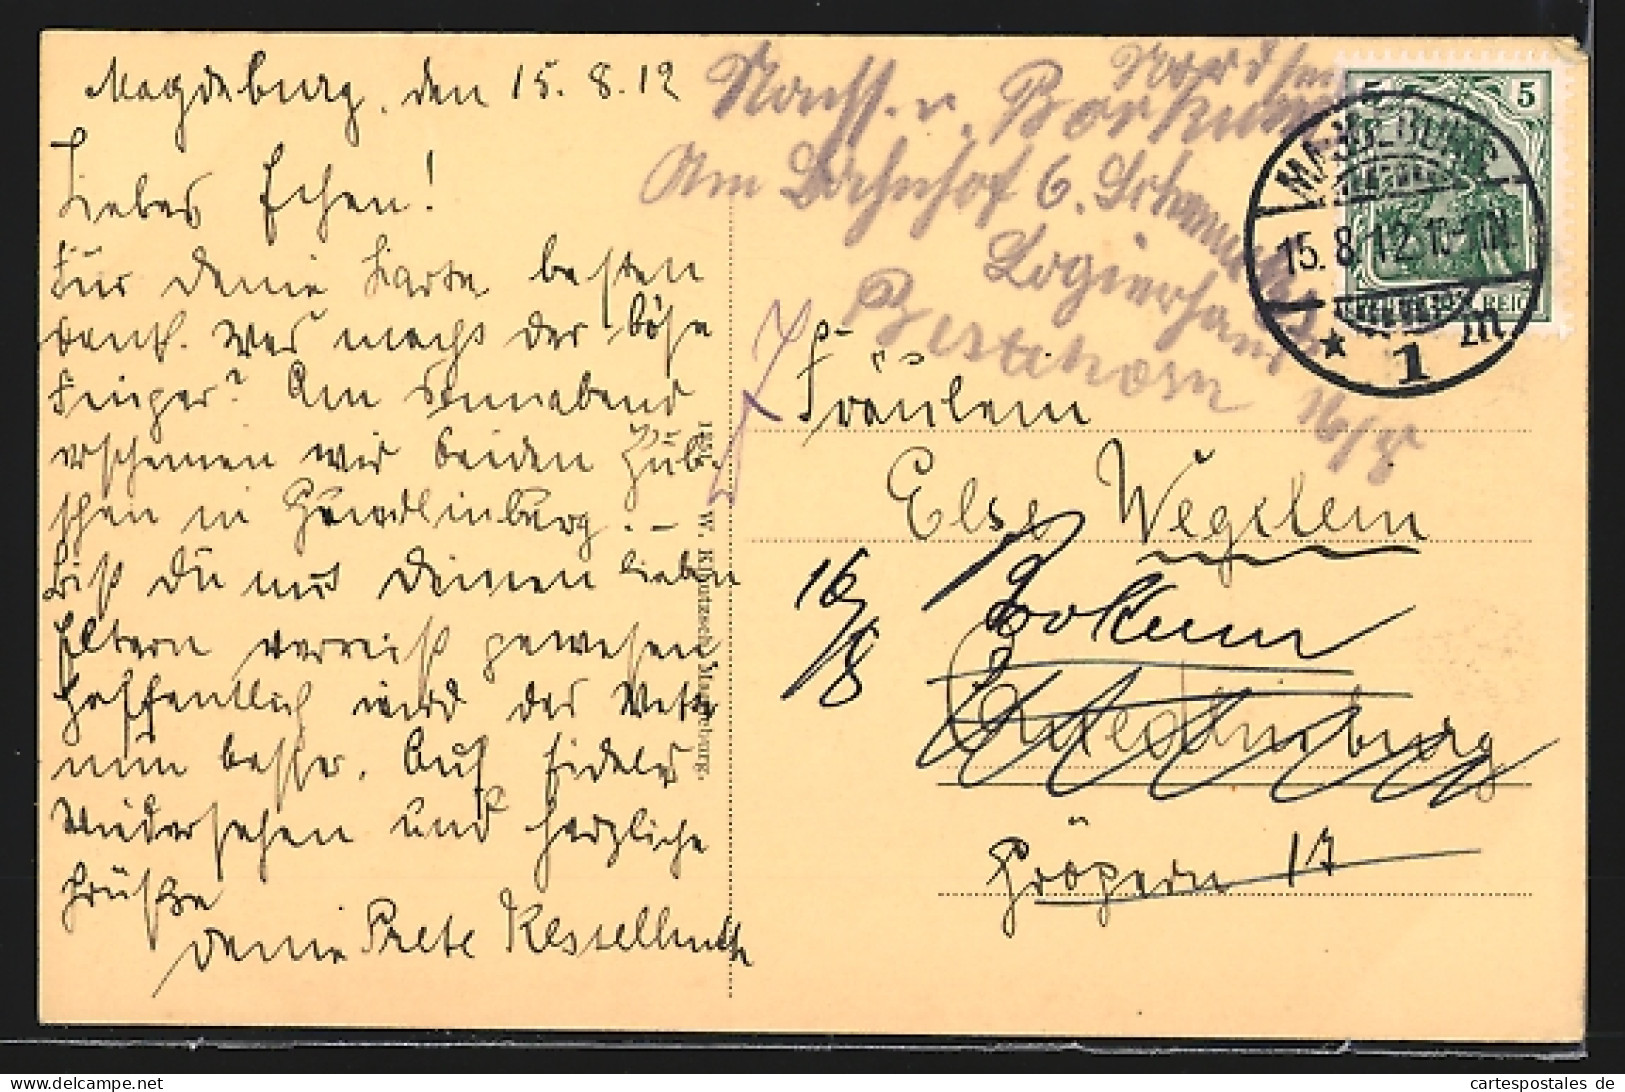 Magdeburg, den 15. 8. 12
Liebes Elschen!
Für Deine Karte besten
Dank. Was macht der böse
Finger? Am Sonnabend
erscheinen wir beiden Hüb-
schen in Quedlinburg. –
Bist Du mit Deinen lieben
Eltern verreist gewesen
Hoffentlich wird das Wetter
nun besser. Auf fideles
Wiedersehen und herzliche
Grüße
Deine Grete
W. Klautzsch, Magdeburg.
Nordsee
Nach Borkum
Am Bahnhof 6.
Logierhaus
16/8
Fräulein
Else Wegelein
16/8
Borkum
Quedlinburg
Gröpern 17
5 5
MAGDEBURG
15.8.12.
* 1
REICH
cartespostales de